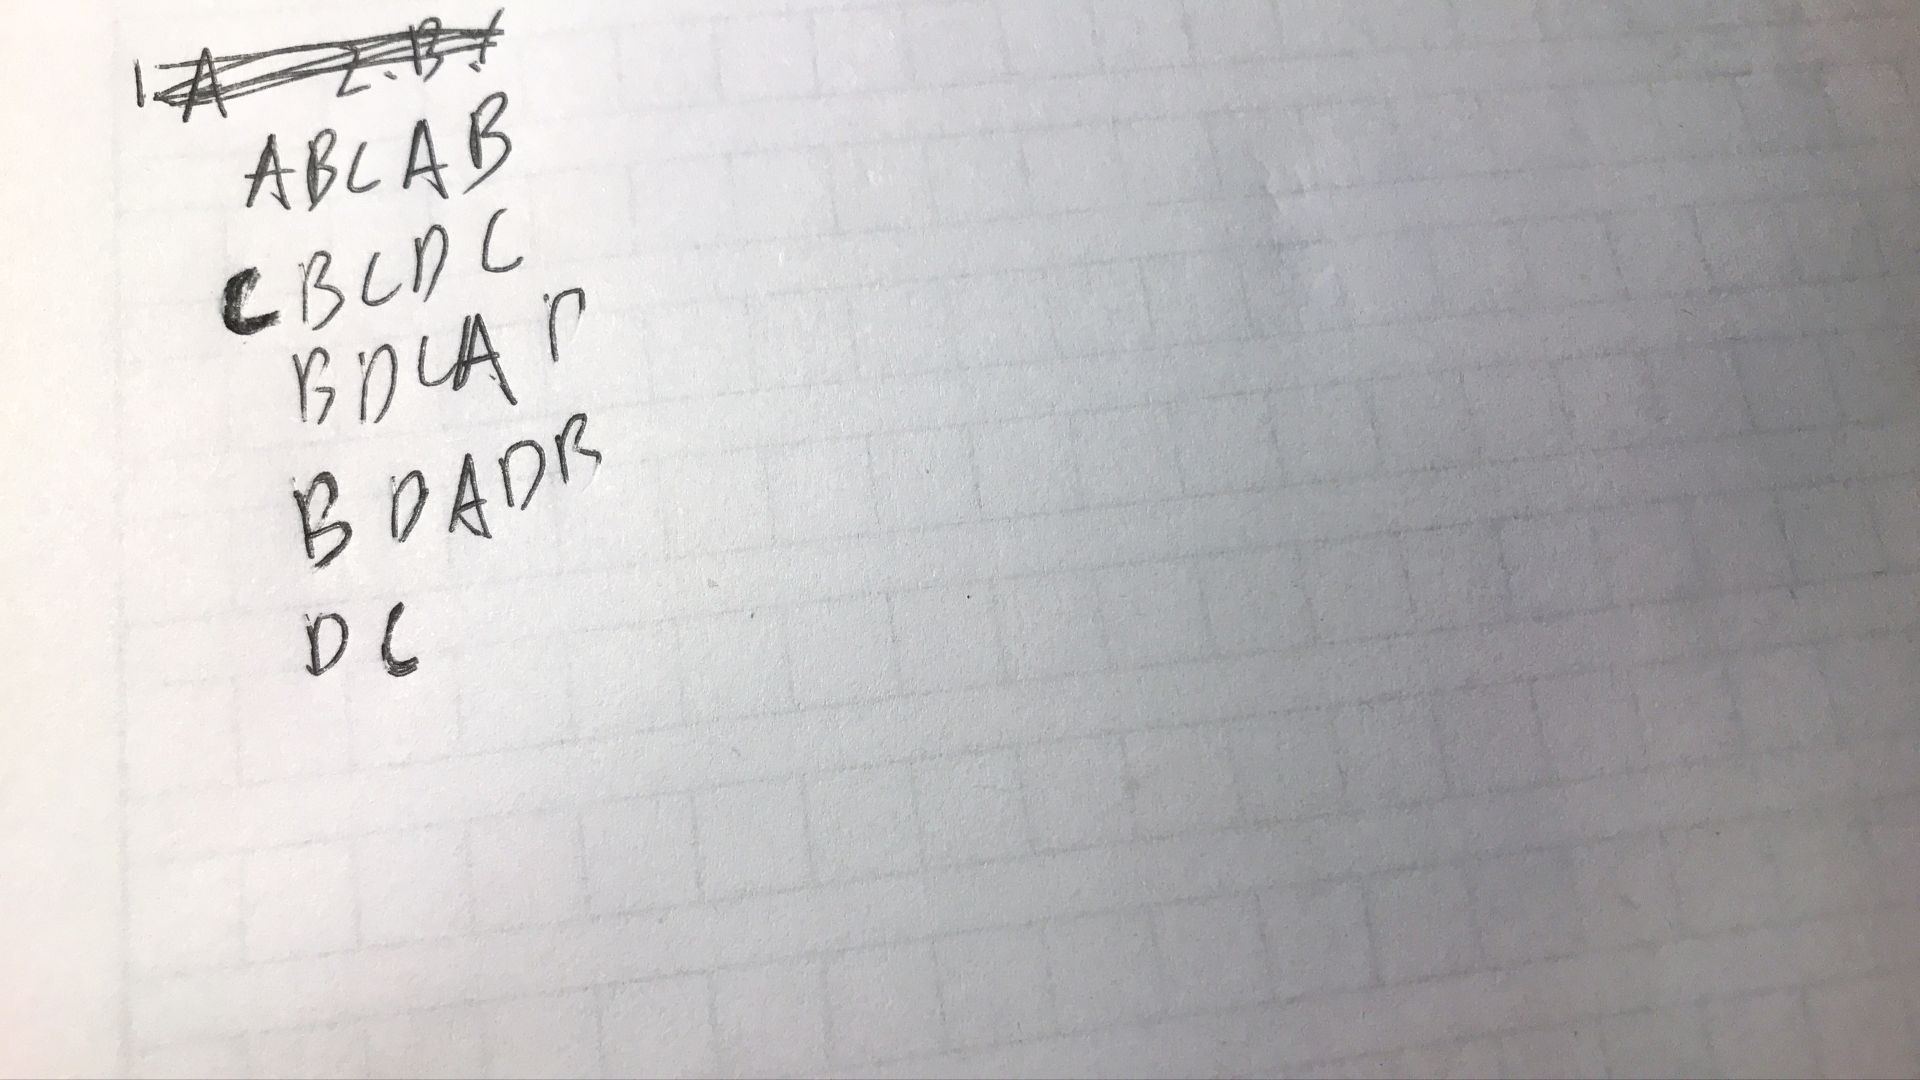 1. A 2. B.
ABCAB
CBCDC
BDCAD
BDADB
DC